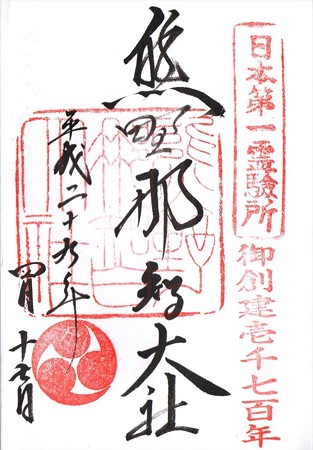 日本第一霊験所
御創建壱千七百年
熊野那智大社
平成二十九年
四月
十七日